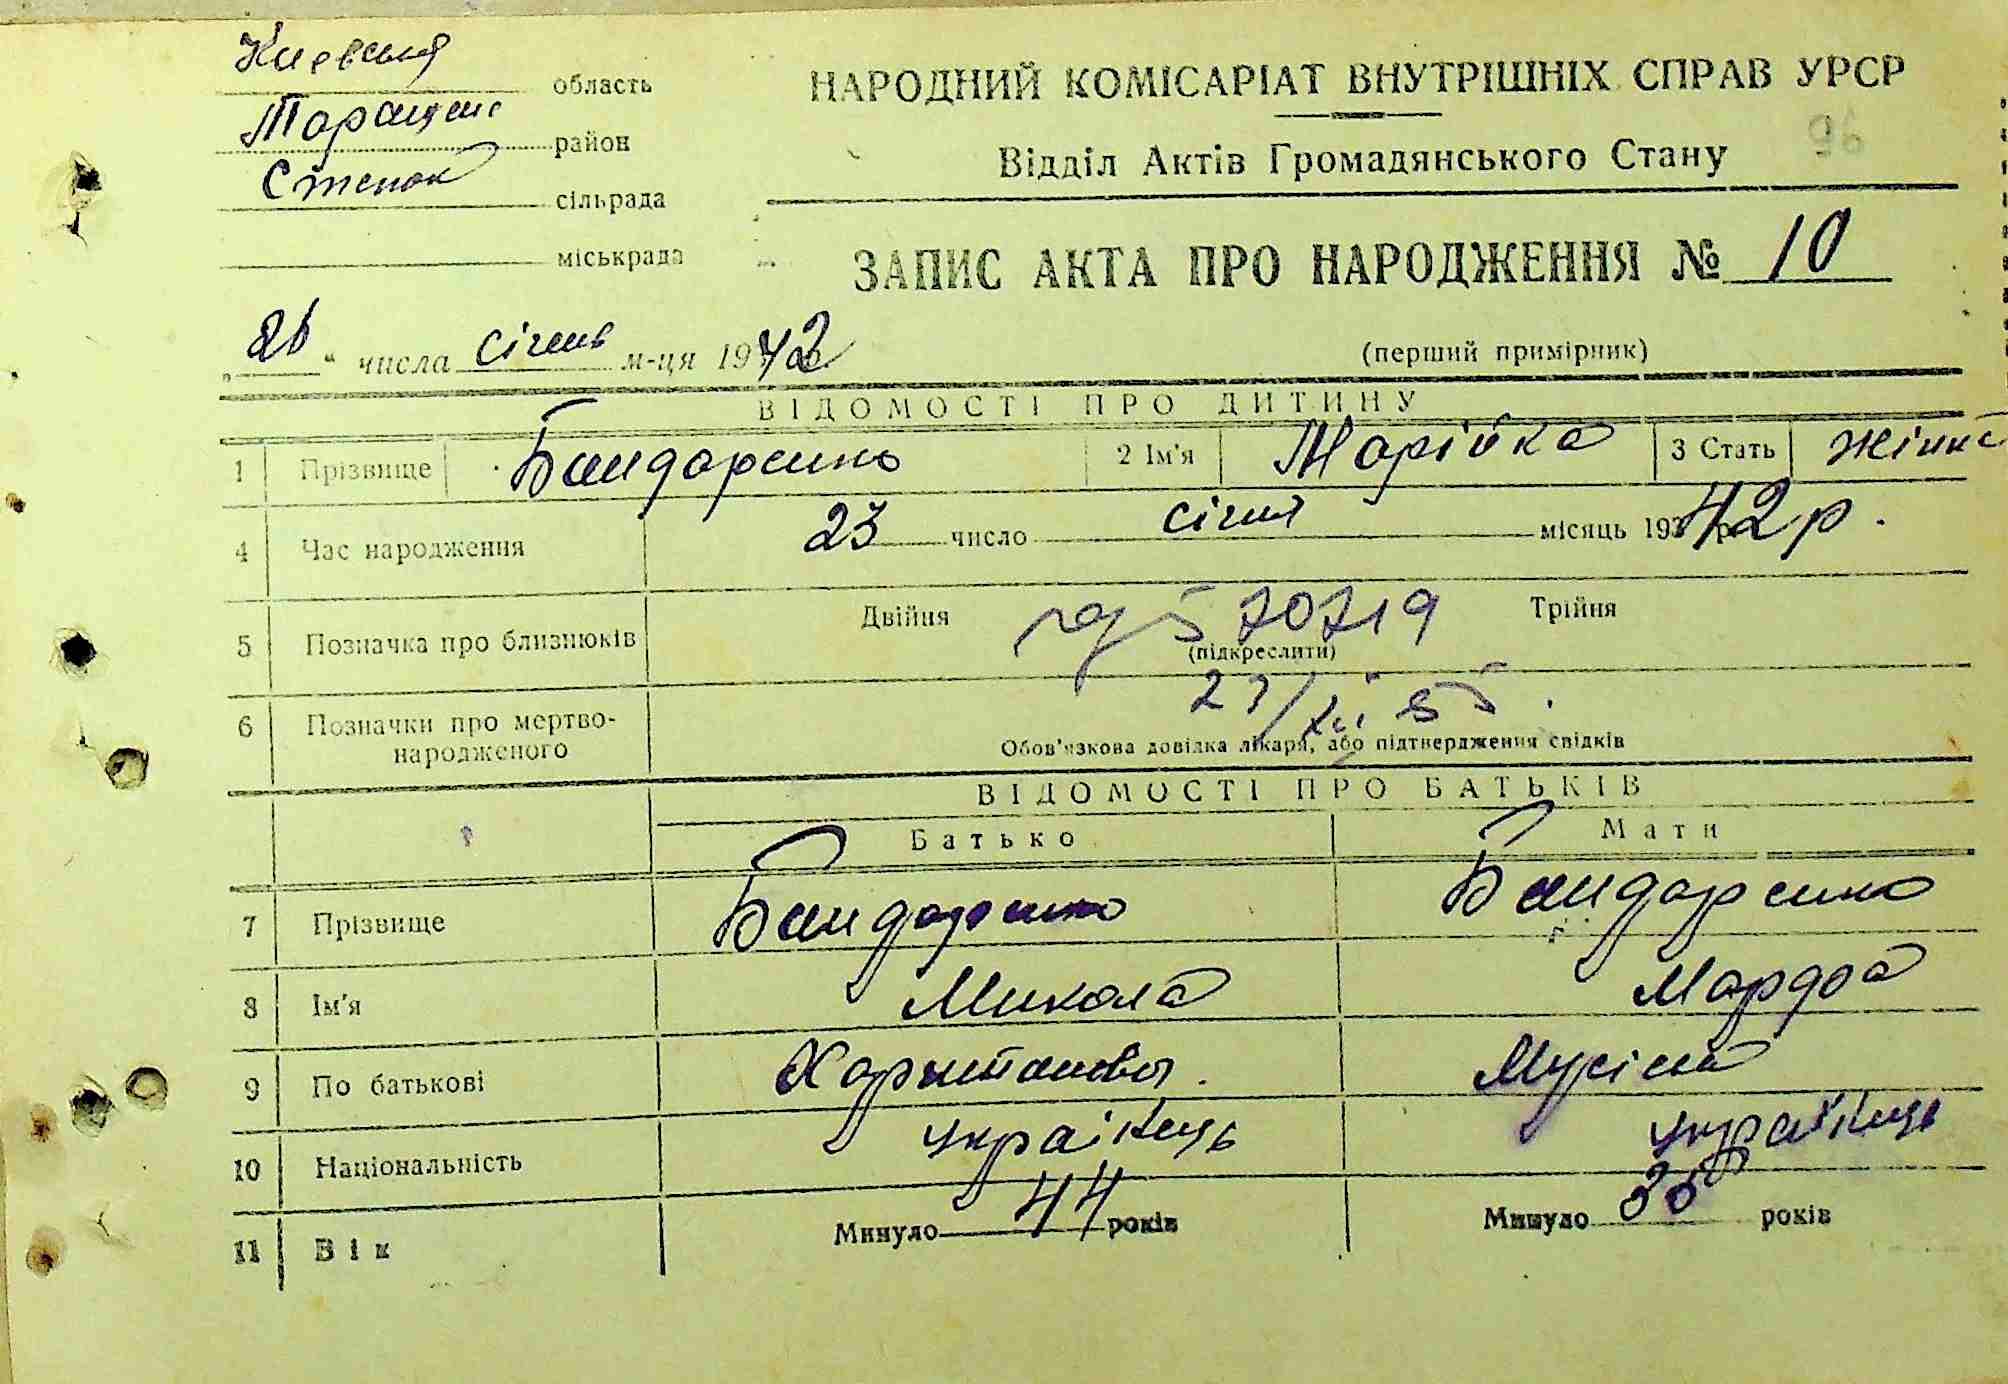 Киевская область
Таращанс район
Степок сільрада
міськрада
НАРОДНИЙ КОМІСАРІАТ ВНУТРІШНІХ СПРАВ УРСР
Відділ Актів Громадянського Стану
96
ЗАПИС АКТА ПРО НАРОДЖЕННЯ № 10
„26“ числа січень м-ця 1942
(перший примірник)
ВІДОМОСТІ ПРО ДИТИНУ
1 Прізвище Бандаренко 2 Ім'я Марійка 3 Стать жінка
4 Час народження 23 число січня місяць 193 42 р.
5 Позначка про близнюків Двійня 570719 Трійня
(підкреслити)
6 Позначки про мертво-
народженого
Обов'язкова довідка лікаря, або підтвердження свідків
ВІДОМОСТІ ПРО БАТЬКІВ
Батько Мати
7 Прізвище Бандаренко Бандаренко
8 Ім'я Микола
9 По батькові
10 Національність українець українець
11 Вік Минуло 44 років Минуло років